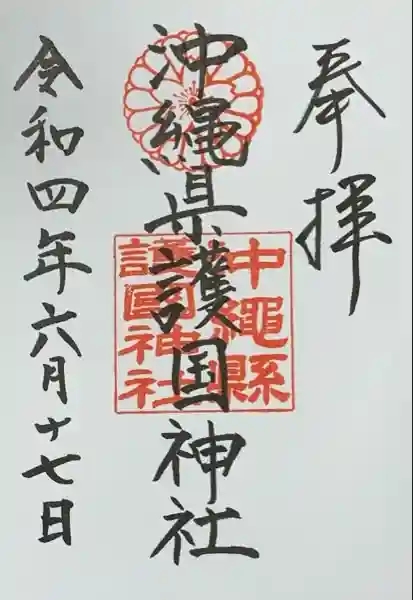 奉拝
沖縄県護国神社
沖繩縣
護國神社
令和四年六月十七日